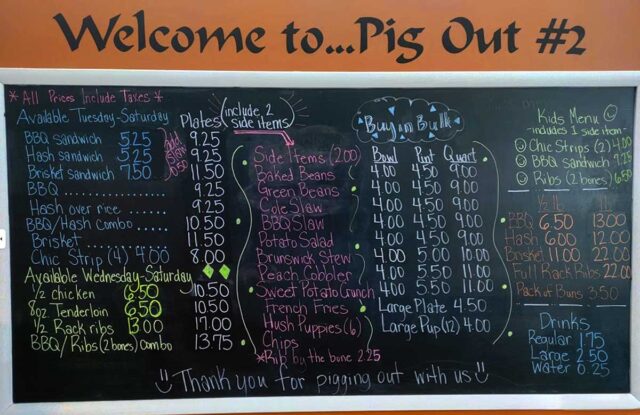 Welcome to...Pig Out #2
*All Prices Include Taxes*
Available Tuesday-Saturday Plates (include 2 side items)
BBQ sandwich 5.25 9.25
Hash sandwich 5.25 9.25
Brisket sandwich 7.50 11.50
BBQ ............ 9.25
Hash over rice ...... 9.25
BBQ/Hash Combo ..... 10.50
Brisket ............ 11.50
Chic Strip (4) 4.00 8.00
Available Wednesday-Saturday
1/2 Chicken 6.50 10.50
8oz Tenderloin 6.50 10.50
1/2 Rack ribs 13.00 17.00
BBQ/Ribs (2 bones) Combo 13.75
Side Items (2.00)
Baked Beans
Green Beans
Cole Slaw
BBQ Slaw
Potato Salad
Brunswick Stew
Peach Cobbler
Sweet Potato Crunch
French Fries
Hush Puppies (6)
Chips
*Rib by the bone 2.25
Buy in Bulk
Bowl Pint Quart
4.00 4.50 9.00
4.00 4.50 9.00
4.00 4.50 9.00
4.00 4.50 9.00
4.00 4.50 9.00
4.00 5.00 10.00
4.00 5.50 11.00
4.00 5.50 11.00
Large Plate 4.50
Large Pup (12) 4.00
Kids Menu
-includes 1 side item-
Chic Strips (2) 4.00
BBQ sandwich 7.25
Ribs (2 bones) 6.50
1/2 lb 1 lb
BBQ 6.50 13.00
Hash 6.00 12.00
Brisket 11.00 22.00
Full Rack Ribs 22.00
Pack of Buns 3.50
Drinks
Regular 1.75
Large 2.50
Water 0.25
Thank you for pigging out with us